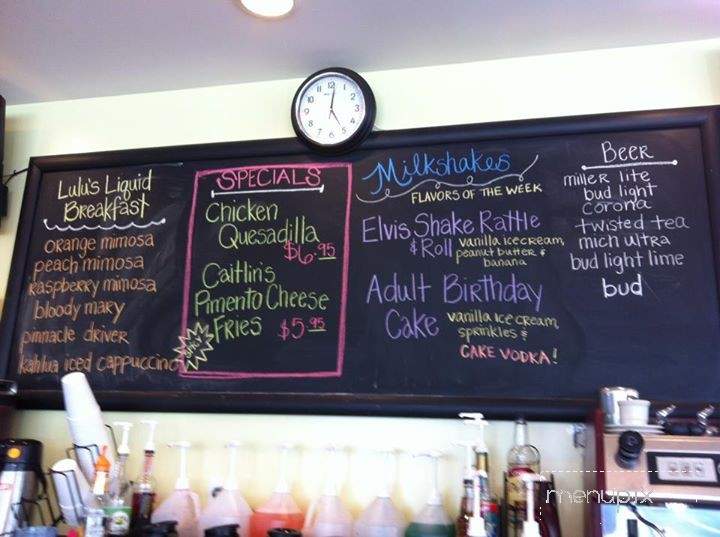 Lulu's Liquid
Breakfast
orange mimosa
peach mimosa
raspberry mimosa
bloody mary
pinnacle driver
kahlua iced cappuccino
SPECIALS
Chicken
Quesadilla
$6.95
Caitlin's
Pimento Cheese
Fries $5.95
Milkshakes
FLAVORS OF THE WEEK
Elvis Shake Rattle
& Roll vanilla ice cream,
peanut butter &
banana
Adult Birthday
Cake vanilla ice cream,
sprinkles &
CAKE VODKA!
BEER
miller lite
bud light
corona
twisted tea
mich ultra
bud light lime
bud
menupix